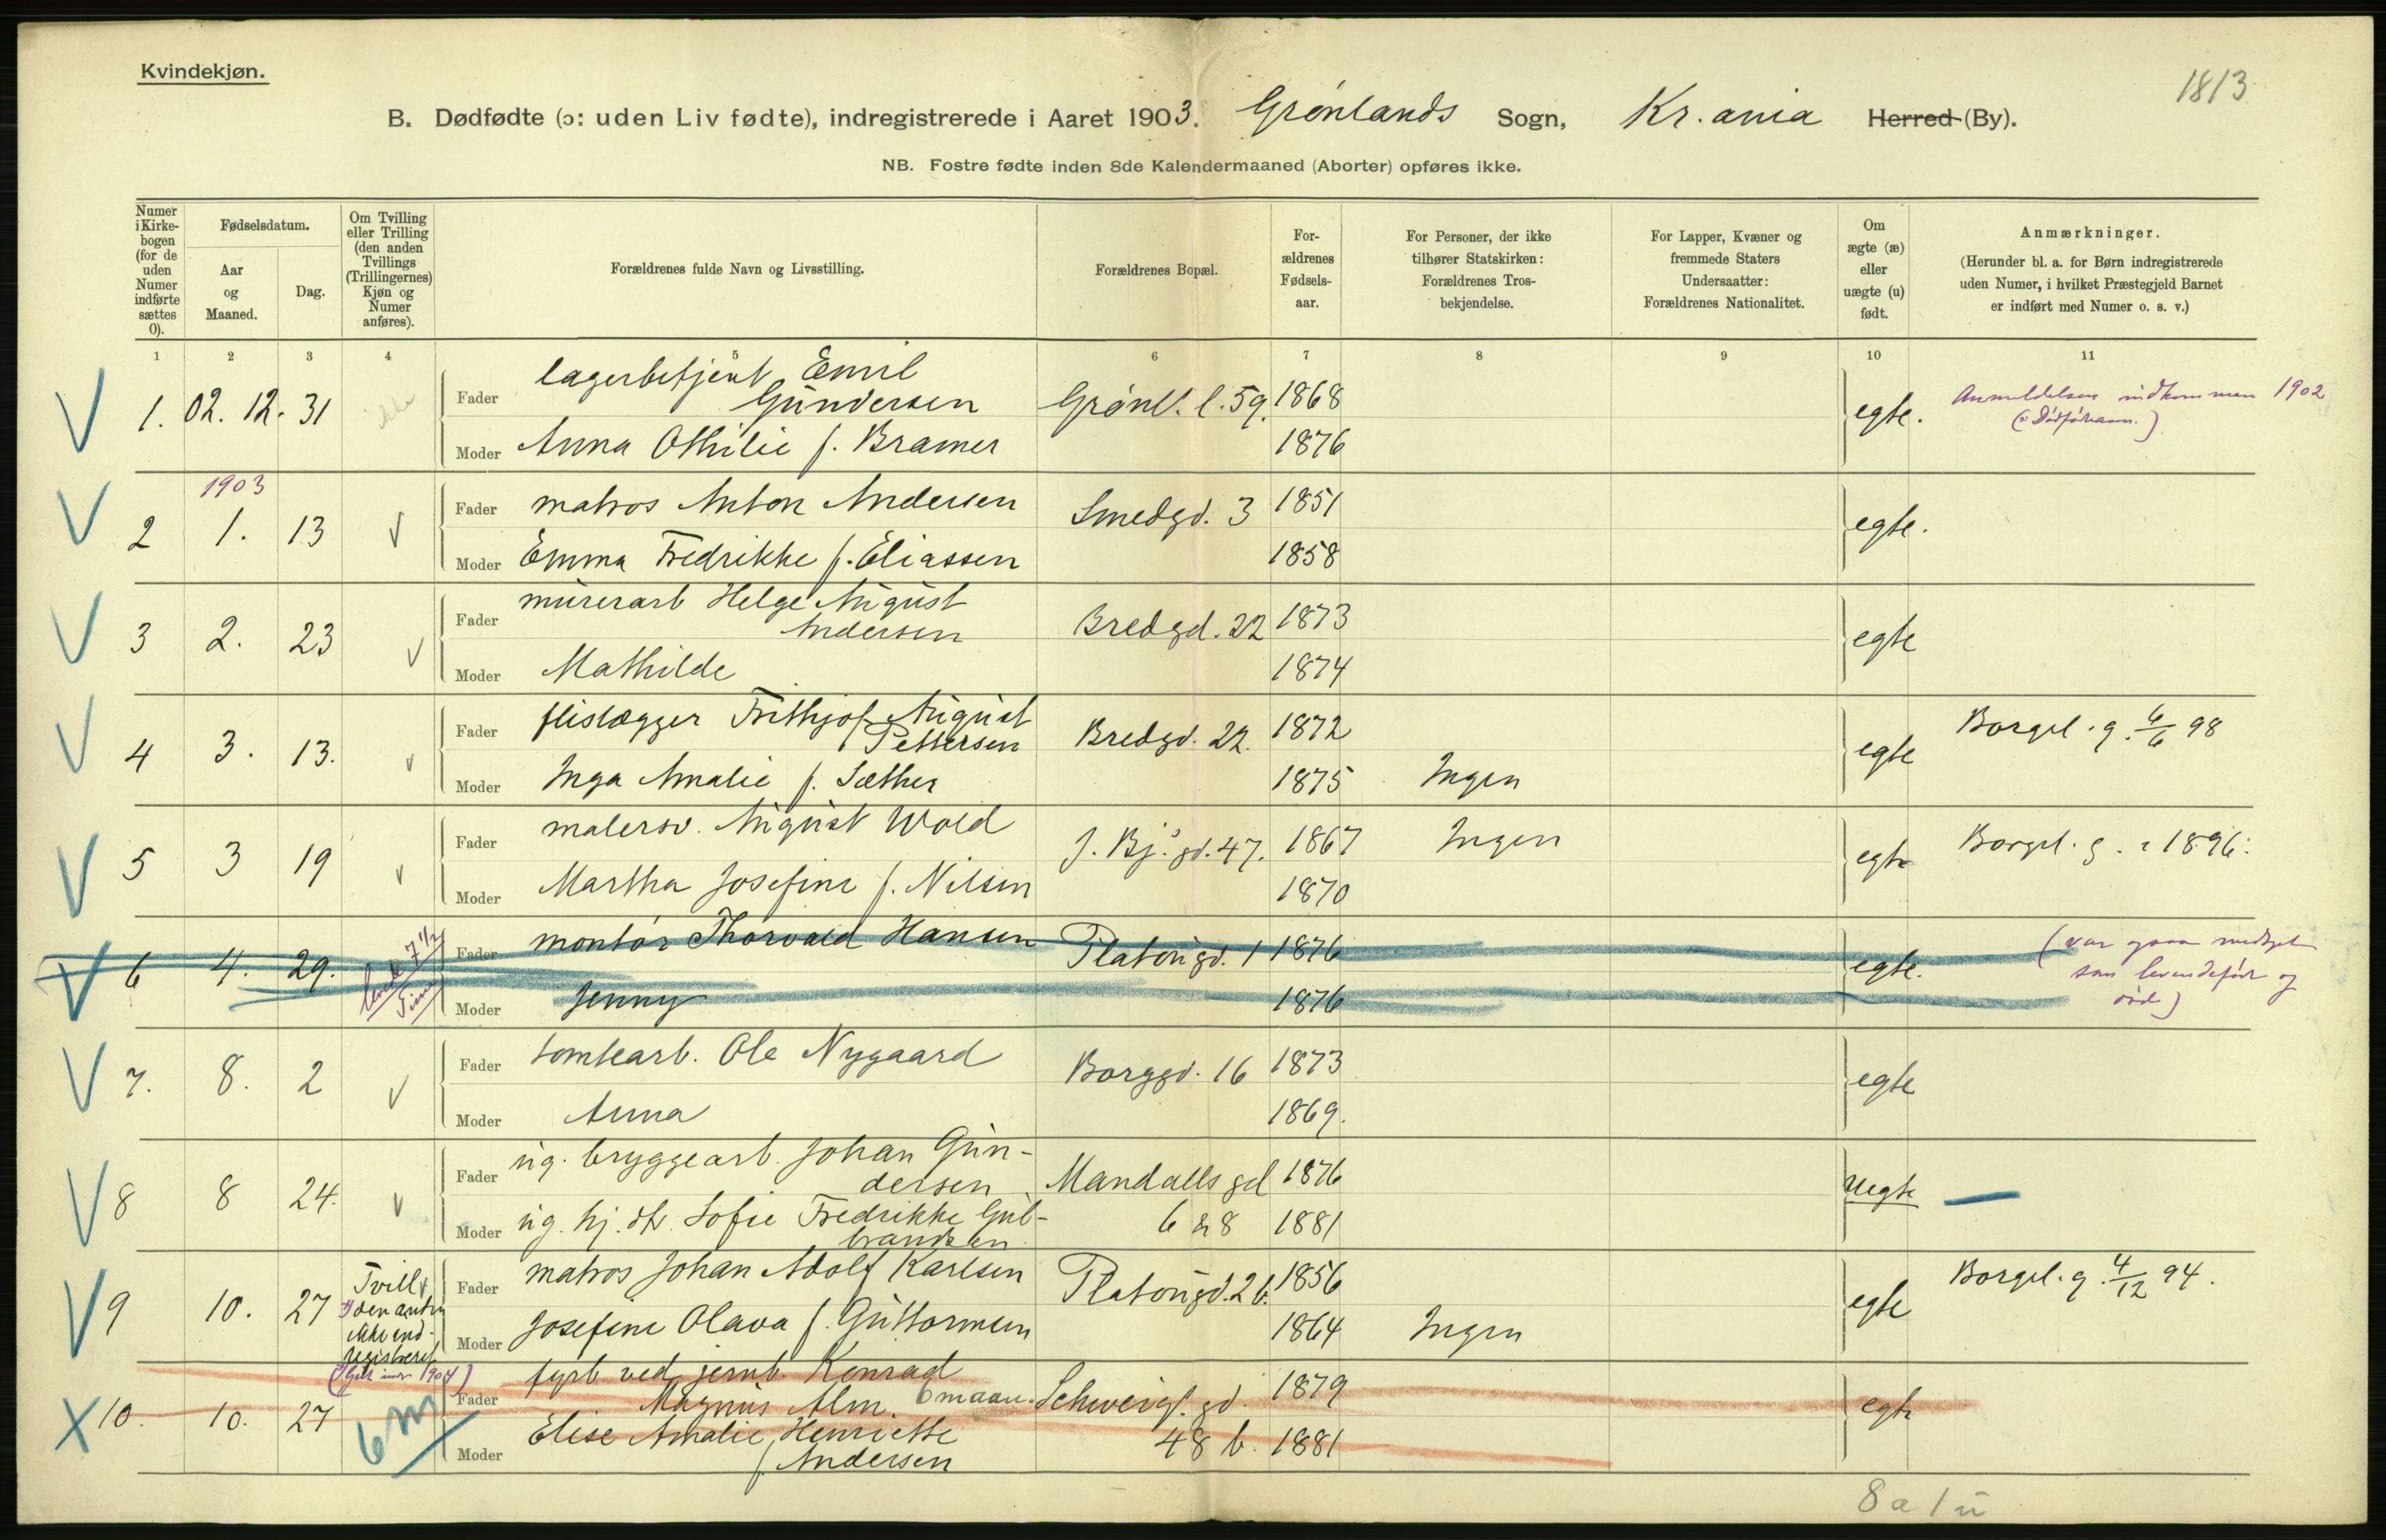 Kvindekjøn.
1813
B. Dødfødte (ɔ: uden Liv fødte), indregistrerede i Aaret 1903. Grønlands Sogn, Kr.ania Herred (By).
NB. Fostre fødte inden 8de Kalendermaaned (Aborter) opføres ikke.
Numer i Kirkebogen (for de uden Numer indførte sættes 0).
Fødselsdatum.
Aar og Maaned.
Dag.
Om Tvilling eller Trilling (den anden Tvillings (Trillingernes) Kjøn og Numer anføres).
Forældrenes fulde Navn og Livsstilling.
Forældrenes Bopæl.
For-ældrenes Fødsels-aar.
For Personer, der ikke tilhører Statskirken: Forældrenes Tros-bekjendelse.
For Lapper, Kvæner og fremmede Staters Undersaatter: Forældrenes Nationalitet.
Om ægte (æ) eller uægte (u) født.
Anmærkninger. (Herunder bl. a. for Børn indregistrerede uden Numer, i hvilket Præstegjeld Barnet er indført med Numer o. s. v.)
1 2 3 4 5 6 7 8 9 10 11
V 1. 02. 12. 31 Fader lagerbetjent Emil Gundersen Grønl. l. 59. 1868 egte. Anmeldelsen indkommen 1902
Moder Anna Othilie f. Bramer 1876
1903
V 2 1. 13 V Fader matros Anton Andersen Smedgd. 3 1851 egte.
Moder Emma Fredrikke f. Eliassen 1858
V 3 2. 23 V Fader murerarb Helge August Andersen Bredgd. 22 1873 egte
Moder Mathilde 1874
V 4 3. 13. V Fader flislægger Frithjof August Pettersen Bredgd. 22. 1872 egte Borgel. g. 6/6 98
Moder Inga Amalie f. Sæther 1875 Ingen
V 5 3 19 V Fader malersv. August Wold J. Bj.s gd. 47. 1867 Ingen egte Borgel. g. 1896.
Moder Martha Josefine f. Nilsen 1870
V 6 4. 29. 7 1/2 Fader montør Thorvald Hansen Platougd. 1 1876 egte. (var ogsaa medtget som levendefødt og død)
Moder Jenny 1876
V 7. 8. 2 V Fader tomtearb. Ole Nygaard Borggd. 16 1873 egte
Moder Anna 1869.
V 8 8 24. V Fader ug. bryggearb. Johan Gundersen Mandalls gd 1876 uegte
Moder ug. hj. dtr. Sofie Fredrikke Gulbrandsen 6 & 8 1881
V 9 10. 27 Tvill. den anden ikke indregistreret Fader matros Johan Adolf Karlsen Platougd. 26. 1856 egte Borgel. g. 4/12 94.
Moder Josefine Olava f. Guttormsen 1864 Ingen
X 10. 10. 27 6 m Fader fyrb. ved jernb. Konrad Magnus Alm. 6 maan. Schweig. gd. 1879 egte
Moder Elise Amalie Henriette f. Andersen 48 b. 1881
8 a 1 u